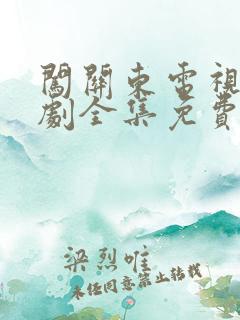 闖關東電視
劇全集免費
梁烈唯
未经同意禁止转载